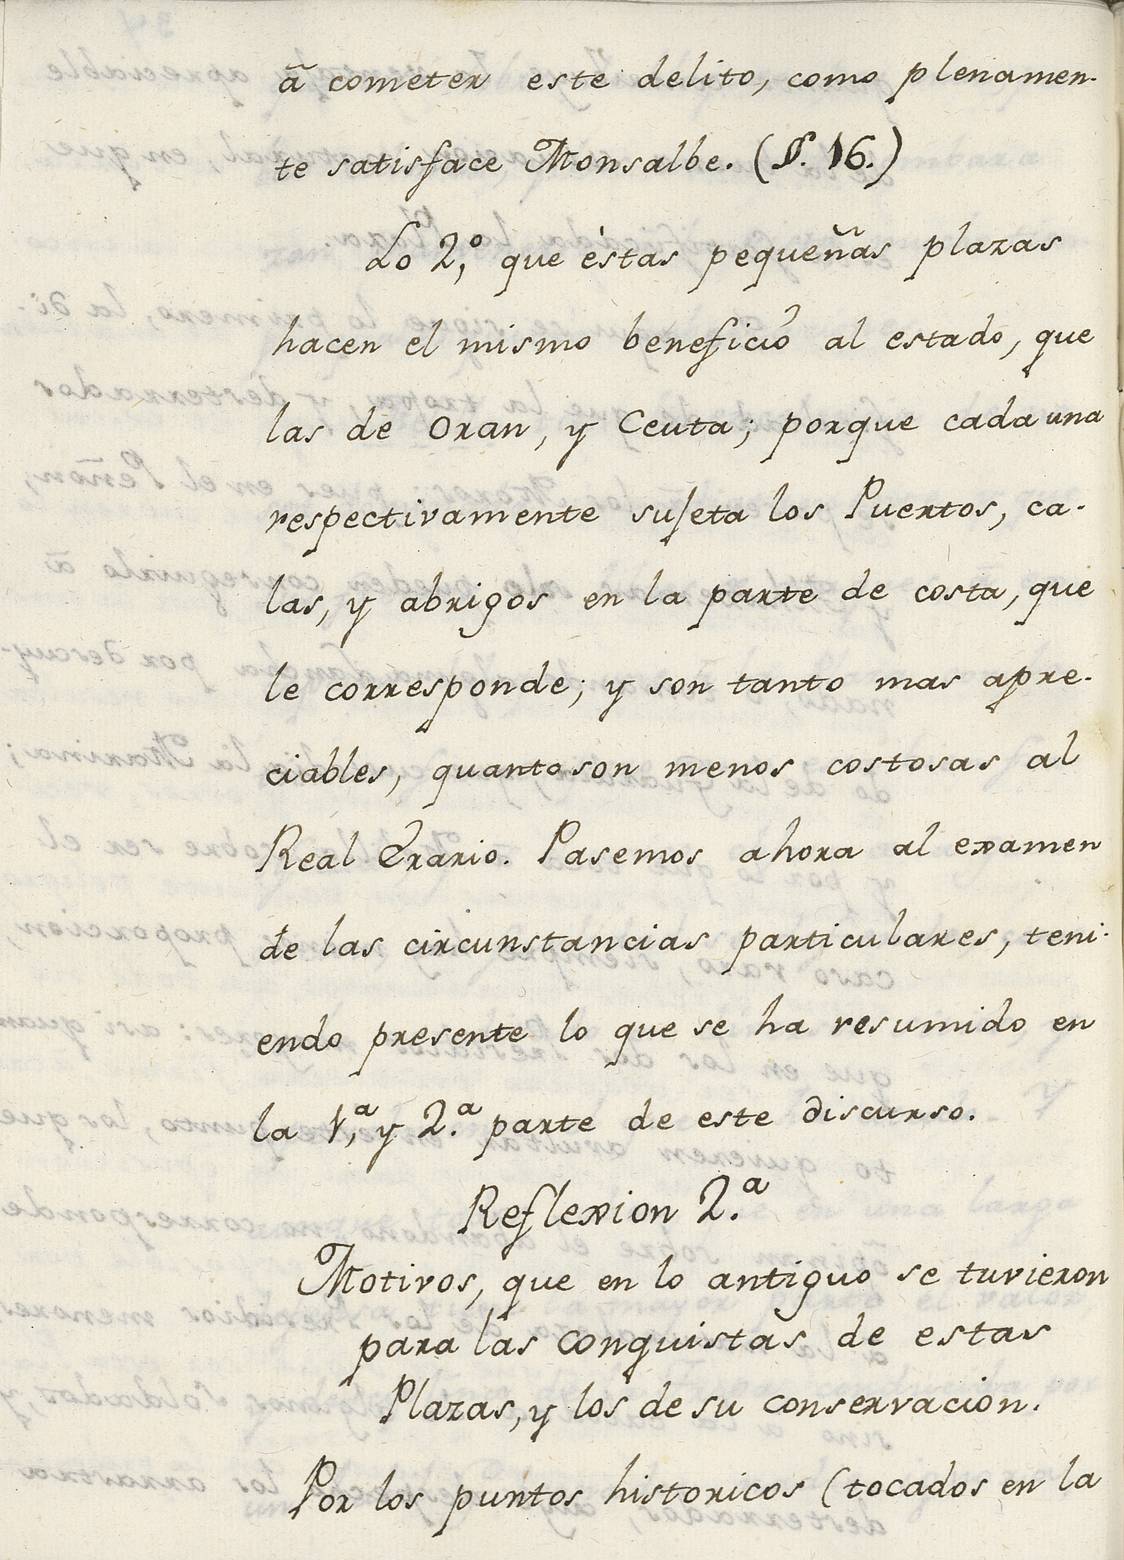 â cometer este delito, como plenamen-
te satisface Monsalbe. (§. 16.)
Lo 2,º que èstas pequeñas plazas
hacen el mismo beneficiò al estado, que
las de Oran, y Ceuta; porque cada una
respectivamente sujeta los Puertos, ca-
las, y abrigos en la parte de costa, que
le corresponde; y son tanto mas apre-
ciables, quanto son menos costosas al
Real Erario. Pasemos ahora al examen
de las circunstancias particulares, teni-
endo presente lo que se ha resumido en
la 1,ª y 2.ª parte de este discurso.
Reflexion 2.ª
Motivos, que en lo antiguo se tuvieron
para las conquistas de estas
Plazas, y los de su conservacion.
Por los puntos historicos (tocados en la